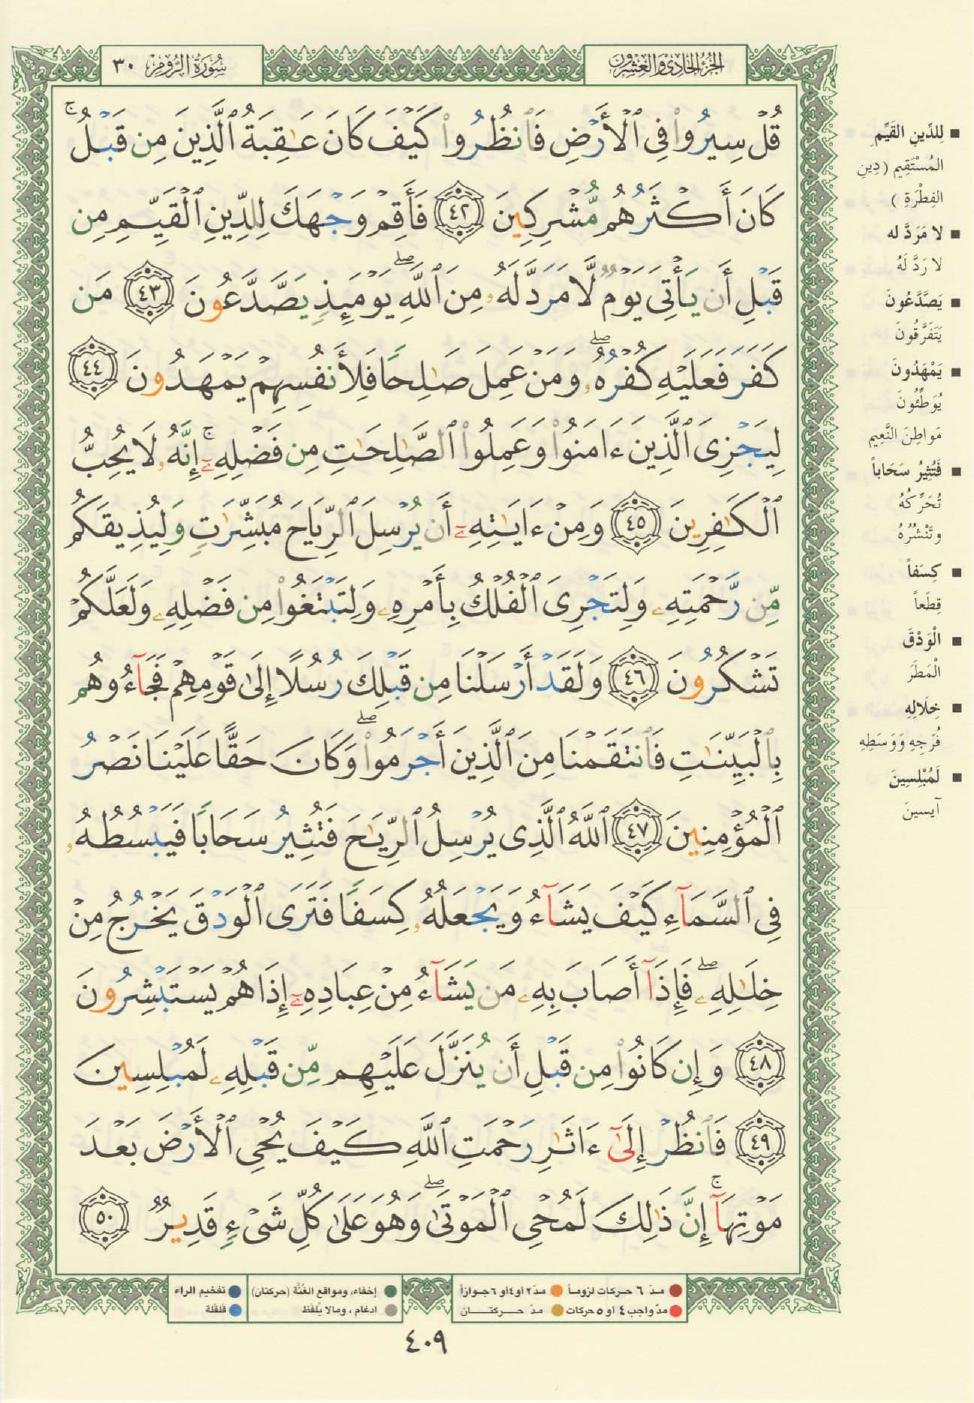 الجزء الحادي والعشرون
سورة الروم ٣٠
قُلْ سِيرُوا۟ فِى ٱلْأَرْضِ فَٱنظُرُوا۟ كَيْفَ كَانَ عَـٰقِبَةُ ٱلَّذِينَ مِن قَبْلُ ۚ
كَانَ أَكْثَرُهُم مُّشْرِكِينَ ٤٢ فَأَقِمْ وَجْهَكَ لِلدِّينِ ٱلْقَيِّمِ مِن
قَبْلِ أَن يَأْتِىَ يَوْمٌ لَّا مَرَدَّ لَهُۥ مِنَ ٱللَّهِ ۖ يَوْمَئِذٍ يَصَّدَّعُونَ ٤٣ مَن
كَفَرَ فَعَلَيْهِ كُفْرُهُۥ ۖ وَمَنْ عَمِلَ صَـٰلِحًا فَلِأَنفُسِهِمْ يَمْهَدُونَ ٤٤
لِيَجْزِىَ ٱلَّذِينَ ءَامَنُوا۟ وَعَمِلُوا۟ ٱلصَّـٰلِحَـٰتِ مِن فَضْلِهِۦٓ ۚ إِنَّهُۥ لَا يُحِبُّ
ٱلْكَـٰفِرِينَ ٤٥ وَمِنْ ءَايَـٰتِهِۦٓ أَن يُرْسِلَ ٱلرِّيَاحَ مُبَشِّرَٰتٍ وَلِيُذِيقَكُم
مِّن رَّحْمَتِهِۦ وَلِتَجْرِىَ ٱلْفُلْكُ بِأَمْرِهِۦ وَلِتَبْتَغُوا۟ مِن فَضْلِهِۦ وَلَعَلَّكُمْ
تَشْكُرُونَ ٤٦ وَلَقَدْ أَرْسَلْنَا مِن قَبْلِكَ رُسُلًا إِلَىٰ قَوْمِهِمْ فَجَآءُوهُم
بِٱلْبَيِّنَـٰتِ فَٱنتَقَمْنَا مِنَ ٱلَّذِينَ أَجْرَمُوا۟ ۖ وَكَانَ حَقًّا عَلَيْنَا نَصْرُ
ٱلْمُؤْمِنِينَ ٤٧ ٱللَّهُ ٱلَّذِى يُرْسِلُ ٱلرِّيَـٰحَ فَتُثِيرُ سَحَابًا فَيَبْسُطُهُۥ
فِى ٱلسَّمَآءِ كَيْفَ يَشَآءُ وَيَجْعَلُهُۥ كِسَفًا فَتَرَى ٱلْوَدْقَ يَخْرُجُ مِنْ
خِلَـٰلِهِۦ ۖ فَإِذَآ أَصَابَ بِهِۦ مَن يَشَآءُ مِنْ عِبَادِهِۦٓ إِذَا هُمْ يَسْتَبْشِرُونَ
٤٨ وَإِن كَانُوا۟ مِن قَبْلِ أَن يُنَزَّلَ عَلَيْهِم مِّن قَبْلِهِۦ لَمُبْلِسِينَ
٤٩ فَٱنظُرْ إِلَىٰٓ ءَاثَـٰرِ رَحْمَتِ ٱللَّهِ كَيْفَ يُحْىِ ٱلْأَرْضَ بَعْدَ
مَوْتِهَآ ۚ إِنَّ ذَٰلِكَ لَمُحْىِ ٱلْمَوْتَىٰ ۖ وَهُوَ عَلَىٰ كُلِّ شَىْءٍ قَدِيرٌ ٥٠
■ لِلدِّينِ القَيِّمِ
المُسْتَقِيمِ (دِينِ
الفِطْرَةِ)
■ لا مَرَدَّ له
لا رَدَّ لَهُ
■ يَصَّدَّعُونَ
يَتَفَرَّقُونَ
■ يَمْهَدُونَ
يُوَطِّئُونَ
مَواطِنَ النَّعِيمِ
■ فَتُثِيرُ سَحَاباً
تُحَرِّكُهُ
وتَنْشُرُهُ
■ كِسَفاً
قِطَعاً
■ الْوَدْقَ
الْمَطَرَ
■ خِلَالِهِ
فُرَجِهِ وَوَسَطِهِ
■ لَمُبْلِسِينَ
آيسينَ
مدّ ٦ حركات لزوماً
مدّ ٢ أو ٤ أو ٦ جوازاً
مدّ واجب ٤ أو ٥ حركات
مدّ حركتان
إخفاء، ومواقع الغُنَّة (حركتان)
ادغام ، ومالا يُلفظ
تفخيم الراء
قلقلة
٤٠٩